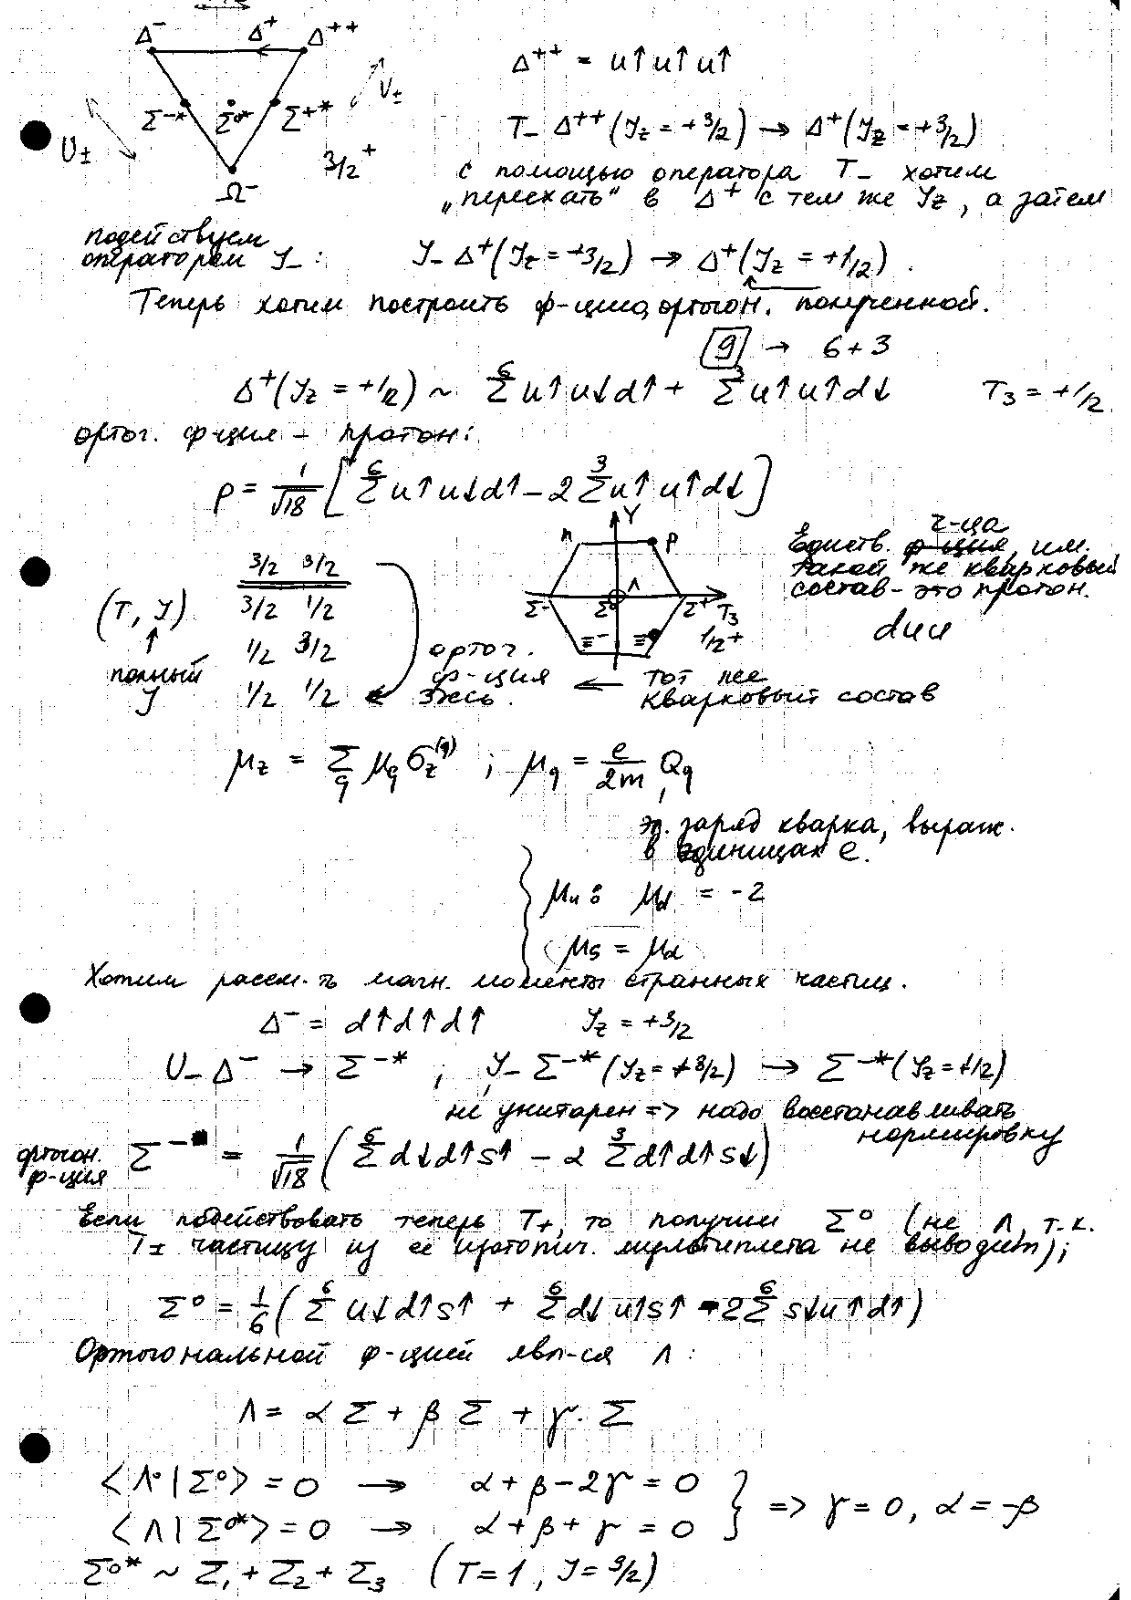 Δ⁻ Δ⁺ Δ⁺⁺
Σ⁻* Σ⁰* Σ⁺*
U± V±
3/2⁺
Ω⁻
Δ⁺⁺ = u↑u↑u↑
T₋ Δ⁺⁺(J_z = +3/2) → Δ⁺(J_z = +3/2)
с помощью оператора T₋ хотим
„переехать“ в Δ⁺ с тем же J_z, а затем
подействуем
оператором J₋ : J₋ Δ⁺(J_z = +3/2) → Δ⁺(J_z = +1/2).
Теперь хотим построить ф-цию, ортогон. полученной.
9 → 6+3
Δ⁺(J_z = +1/2) ~ Σ⁶ u↑u↓d↑ + Σ³ u↑u↑d↓ T₃ = +1/2
ортог. ф-ция – протон:
p = 1/√18 [Σ⁶ u↑u↓d↑ – 2 Σ³ u↑u↑d↓]
n Y p
Σ⁻ Σ⁰ Λ Σ⁺ T₃
Ξ⁻ Ξ⁰ 1/2⁺
Единств. ч-ца, им.
такой же кварковый
состав – это протон.
duu
(T, J)
полный
J
3/2 3/2
3/2 1/2
1/2 3/2
1/2 1/2
ортог.
ф-ция
здесь.
← тот же
кварковый состав
μ_z = Σ_q μ_q σ_z^(q) ; μ_q = e/2m Q_q
эл. заряд кварка, выраж.
в единицах e.
μ_u : μ_d = -2
μ_s = μ_d
Хотим рассм-ть магн. моменты странных частиц.
Δ⁻ = d↑d↑d↑ J_z = +3/2
U₋ Δ⁻ → Σ⁻* ; J₋ Σ⁻*(J_z = +3/2) → Σ⁻*(J_z = +1/2)
не унитарен => надо восстанавливать
нормировку
ортогон.
ф-ция
Σ⁻ = 1/√18 (Σ⁶ d↓d↑s↑ – 2 Σ³ d↑d↑s↓)
Если подействовать теперь T₊, то получим Σ⁰ (не Λ, т.к.
T± частицу из ее изотопич. мультиплета не выводит);
Σ⁰ = 1/6 (Σ⁶ u↓d↑s↑ + Σ⁶ d↓u↑s↑ – 2Σ⁶ s↓u↑d↑)
Ортогональной ф-цией явл-ся Λ :
Λ = α Σ + β Σ + γ · Σ
<Λ⁰|Σ⁰> = 0 → α + β – 2γ = 0
<Λ|Σ⁰*> = 0 → α + β + γ = 0 } => γ = 0, α = -β
Σ⁰* ~ Σ₁ + Σ₂ + Σ₃ (T = 1, J = 3/2)